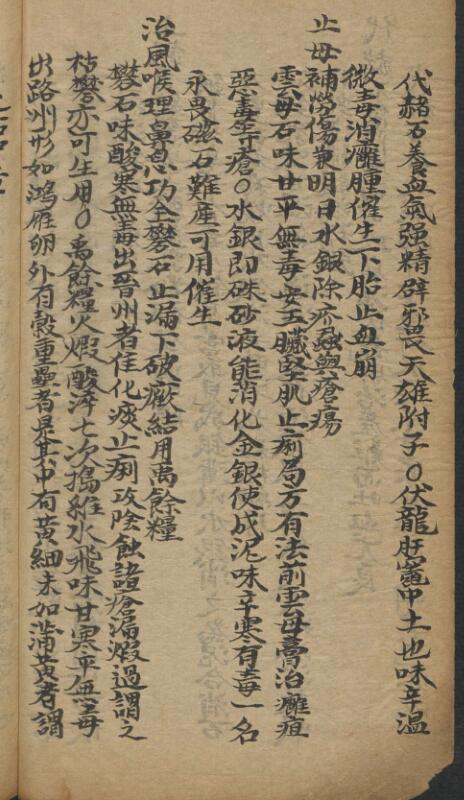 代赭石養血氣强精辟邪畏天雄附子〇伏龍肝竈中土也味辛溫
微毒消癰腫催生下胎止血崩
止毋補勞傷兼明目水銀除疥蟲與瘡瘍
雲毋石味甘平無毒安五臟堅肌止痢局方有法煎雲毋膏治癰疽
惡毒等瘡〇水銀即硃砂液能消化金銀使成泥味辛寒有毒一名
汞畏磁石難産可用催生
治風喉理鼻息功全礬石止漏下破癥結用禹餘糧
礬石味酸寒無毒出晉州者佳化痰止痢攻陰蝕諸瘡漏煅過謂之
枯礬亦可生用〇禹餘糧火煅酸淬七次搗細水飛味甘寒平無毒
出路州形如鴻雁卵外有殼重疊者是其中有黃細末如蒲黃者謂